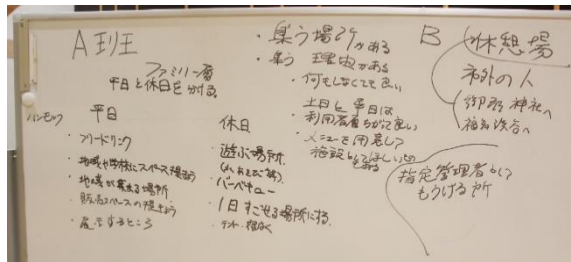 A 班
ファミリー層
平日と休日を分ける
ハンモック
平日
・フリードリンク
・地域や学校にスペース提供
・地域が集まる場所
・販売スペースの提供
・展示するところ
休日
・遊ぶ場所
・バーベキュー
・1日すごせる場所にする
・テント
・集う場所がある
・集う 理由がある
・何もしなくても良い
土日と平日は
利用者層ちがって良い
・メニューを用意して
施設として
B
休憩場
市外の人
神社へ
渓谷へ
指定管理者として
もうける所